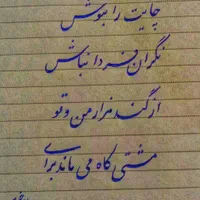 چاییت را بنوش
نگران فردا نباش
از گندمزار من و تو
مشتی کاه می ماند برای